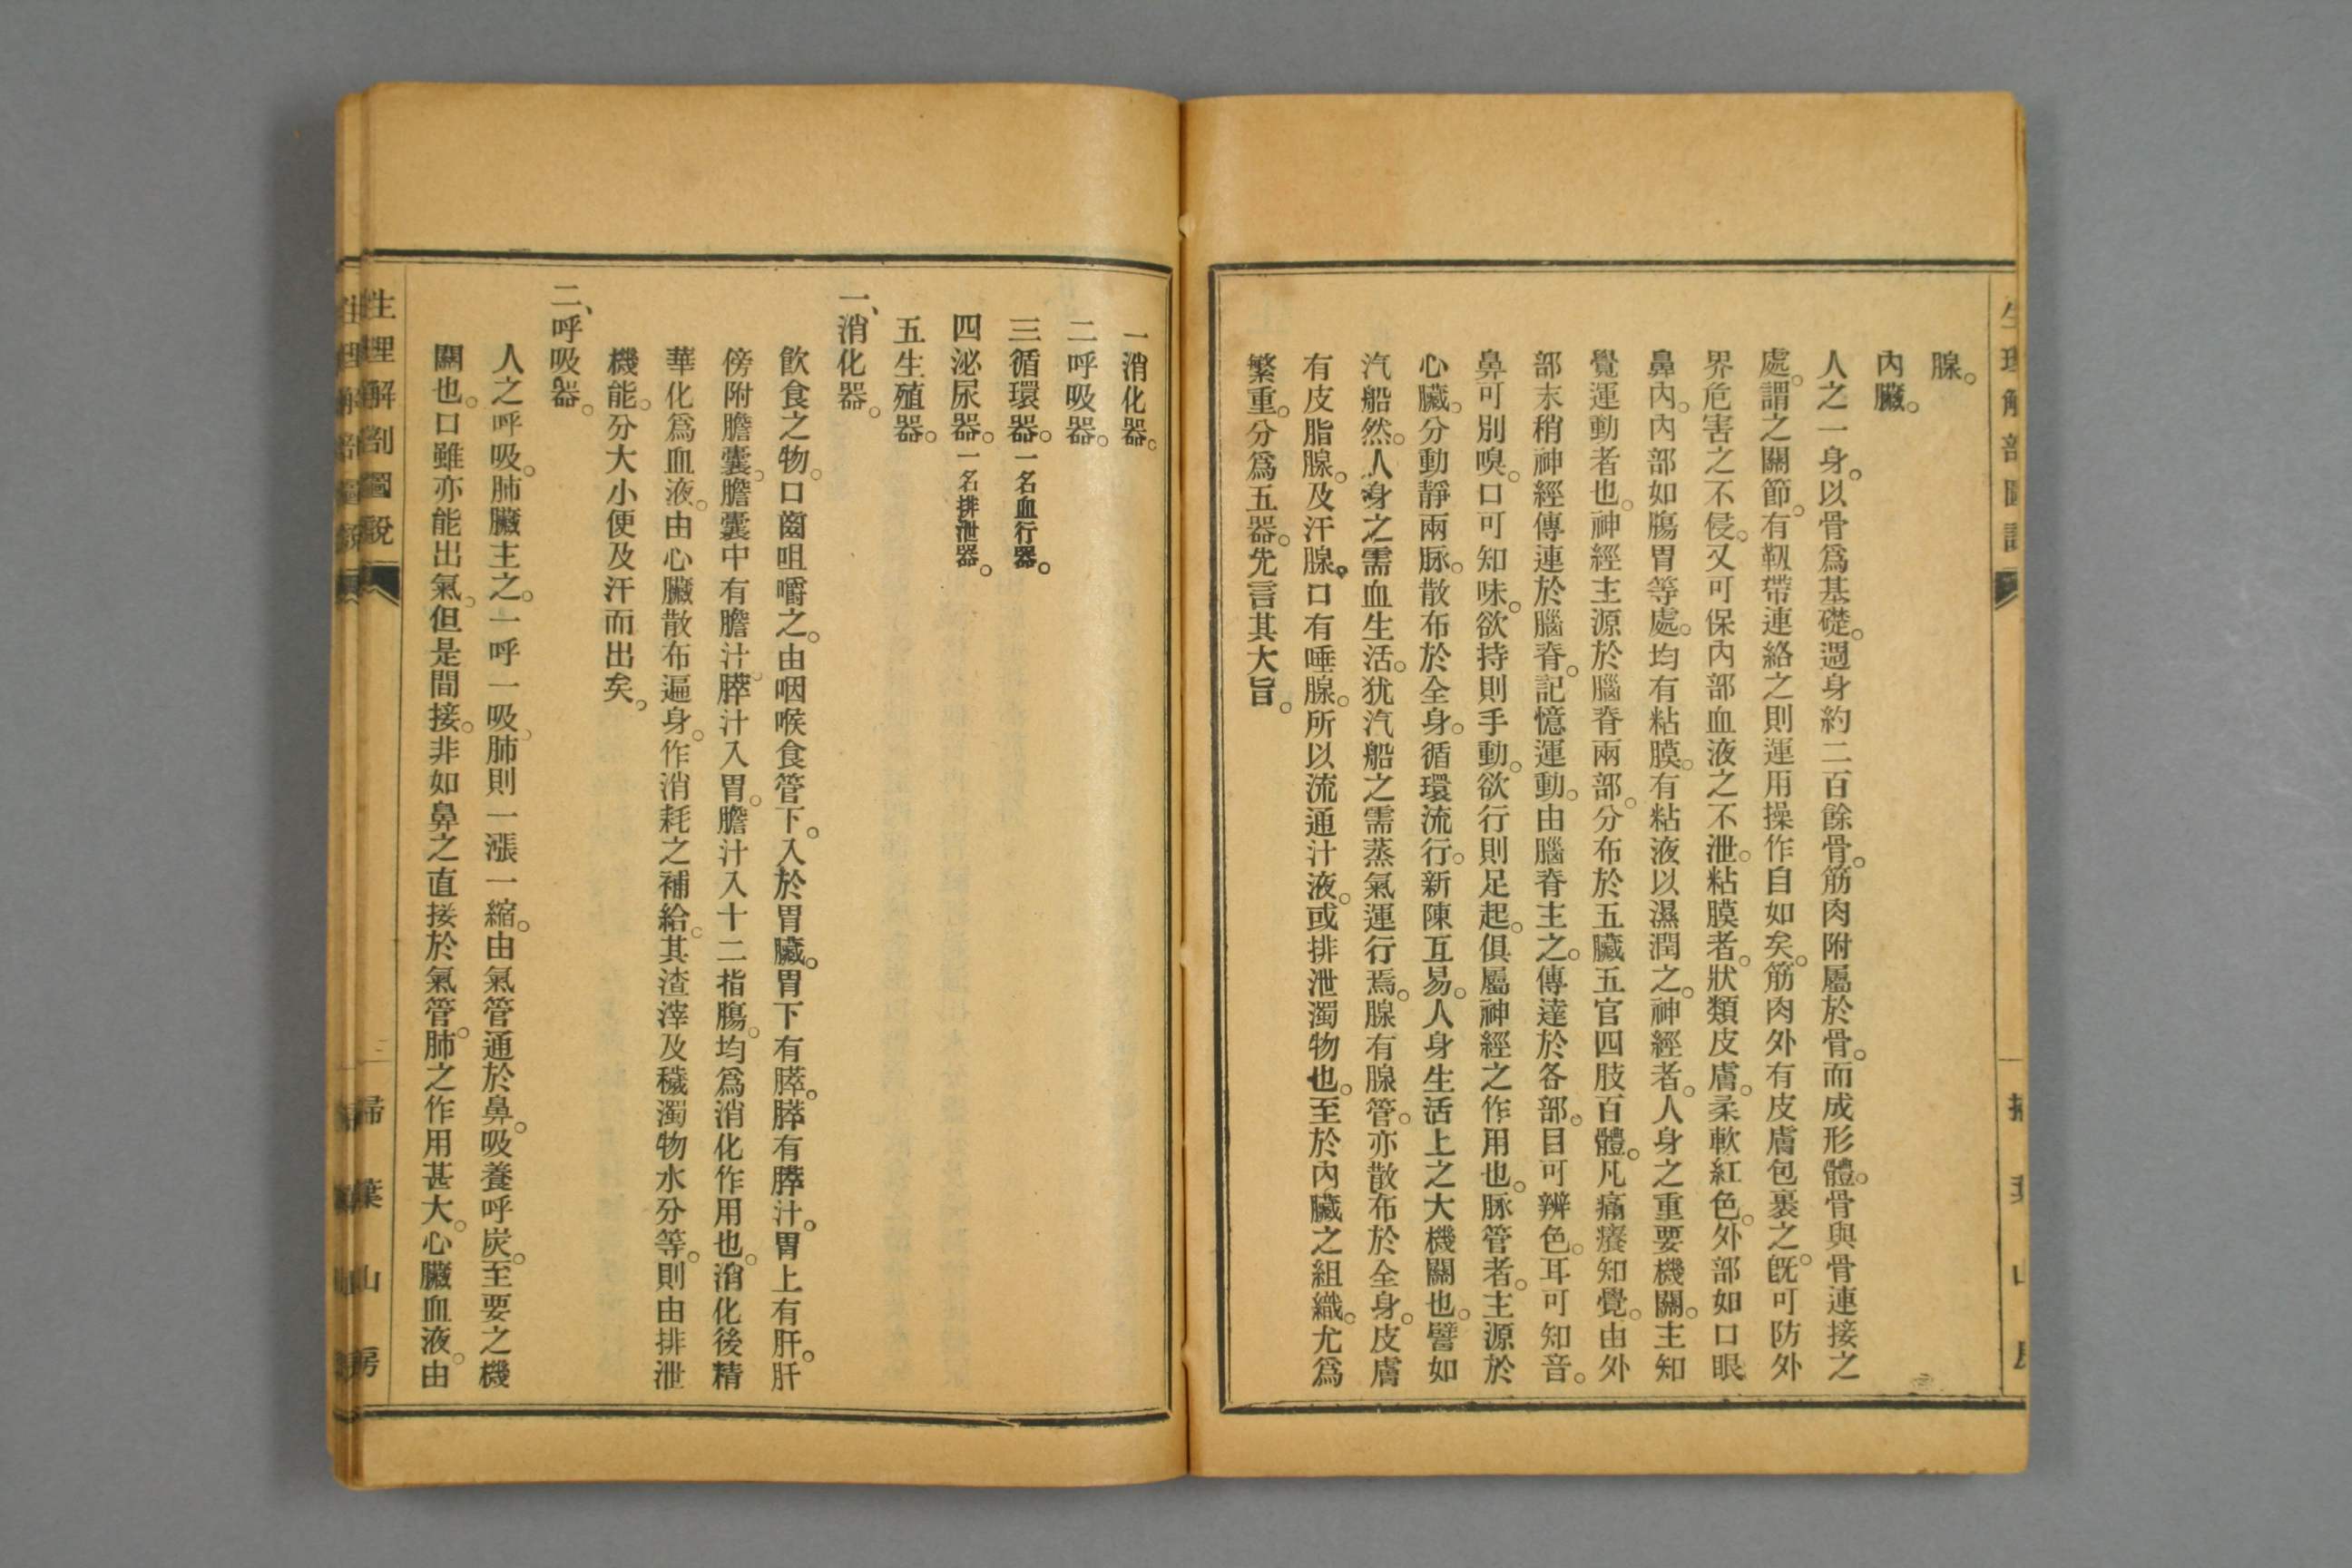 腺。
內臟。
人之一身。以骨爲基礎。週身約二百餘骨。筋肉附屬於骨。而成形體。骨與骨連接之
處。謂之關節。有靱帶連絡之則運用操作自如矣。筋肉外有皮膚包裹之。既可防外
界危害之不侵。又可保內部血液之不泄。粘膜者。狀類皮膚。柔軟紅色。外部如口眼
鼻內。內部如腸胃等處。均有粘膜。有粘液以濕潤之。神經者。人身之重要機關。主知
覺運動者也。神經主源於腦脊兩部。分布於五臟五官四肢百體。凡痛癢知覺。由外
部末稍神經傳連於腦脊。記憶運動。由腦脊主之。傳達於各部。目可辨色。耳可知音。
鼻可別嗅。口可知味。欲持則手動。欲行則足起。俱屬神經之作用也。脉管者。主源於
心臟。分動靜兩脉。散布於全身。循環流行。新陳互易。人身生活上之大機關也。譬如
汽船然。人身之需血生活。犹汽船之需蒸氣運行焉。腺有腺管。亦散布於全身。皮膚
有皮脂腺。及汗腺。口有唾腺。所以流通汁液。或排泄濁物也。至於內臟之組織。尤爲
繁重。分爲五器。先言其大旨。
一消化器。
二呼吸器。
三循環器。一名血行器。
四泌尿器。一名排泄器。
五生殖器。
一、消化器。
飲食之物。口齒咀嚼之。由咽喉食管下。入於胃臟。胃下有膵。膵有膵汁。胃上有肝。肝
傍附膽囊。膽囊中有膽汁。膵汁入胃。膽汁入十二指腸。均爲消化作用也。消化後精
華化爲血液。由心臟散布遍身。作消耗之補給。其渣滓及穢濁物水分等。則由排泄
機能。分大小便及汗而出矣。
二、呼吸器。
人之呼吸。肺臟主之。一呼一吸。肺則一漲一縮。由氣管通於鼻。吸養呼炭。至要之機
關也。口雖亦能出氣。但是間接。非如鼻之直接於氣管。肺之作用甚大。心臟血液。由
生理解剖圖說
三
掃葉山房